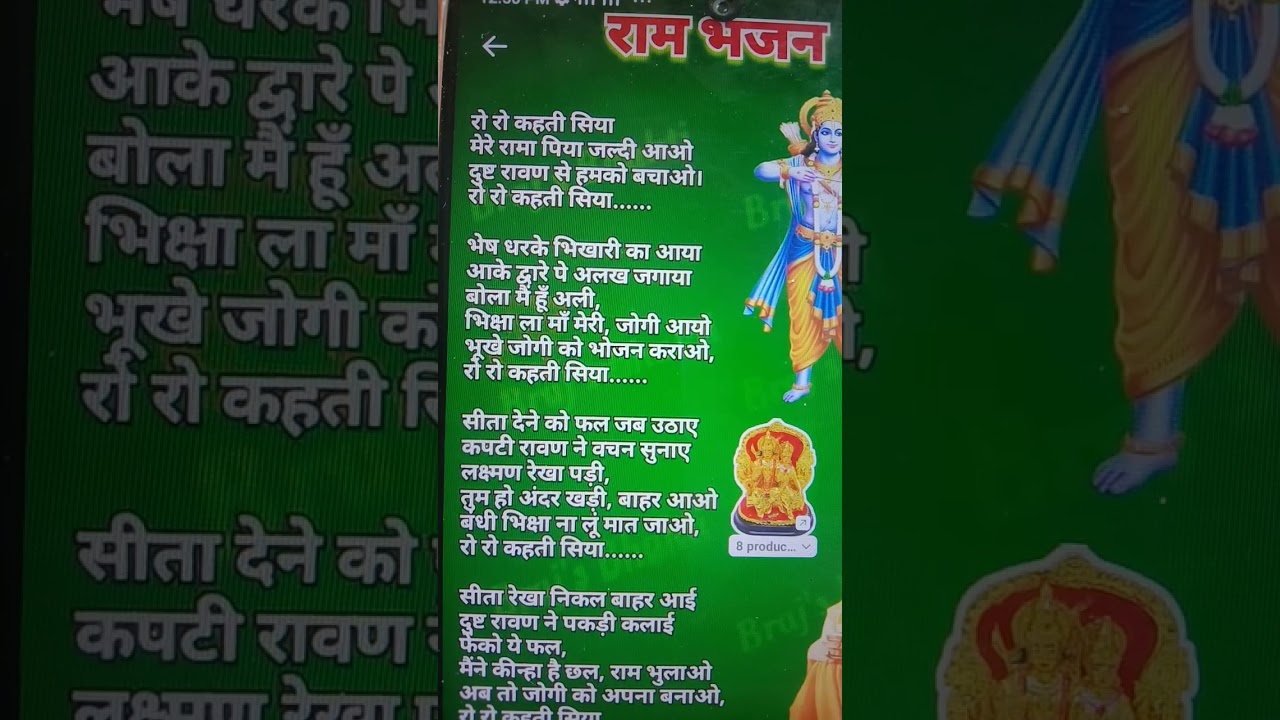 राम भजन
रो रो कहती सिया
मेरे रामा पिया जल्दी आओ
दुष्ट रावण से हमको बचाओ।
रो रो कहती सिया......
भेष धरके भिखारी का आया
आके द्वारे पे अलख जगाया
बोला मैं हूँ अली,
भिक्षा ला माँ मेरी, जोगी आयो
भूखे जोगी को भोजन कराओ,
रो रो कहती सिया......
सीता देने को फल जब उठाए
कपटी रावण ने वचन सुनाए
लक्ष्मण रेखा पड़ी,
तुम हो अंदर खड़ी, बाहर आओ
बंधी भिक्षा ना लूं मात जाओ,
रो रो कहती सिया......
8 produc...
सीता रेखा निकल बाहर आई
दुष्ट रावण ने पकड़ी कलाई
फेंको ये फल,
मैंने कीन्हा है छल, राम भुलाओ
अब तो जोगी को अपना बनाओ,
रो रो कहती सिया